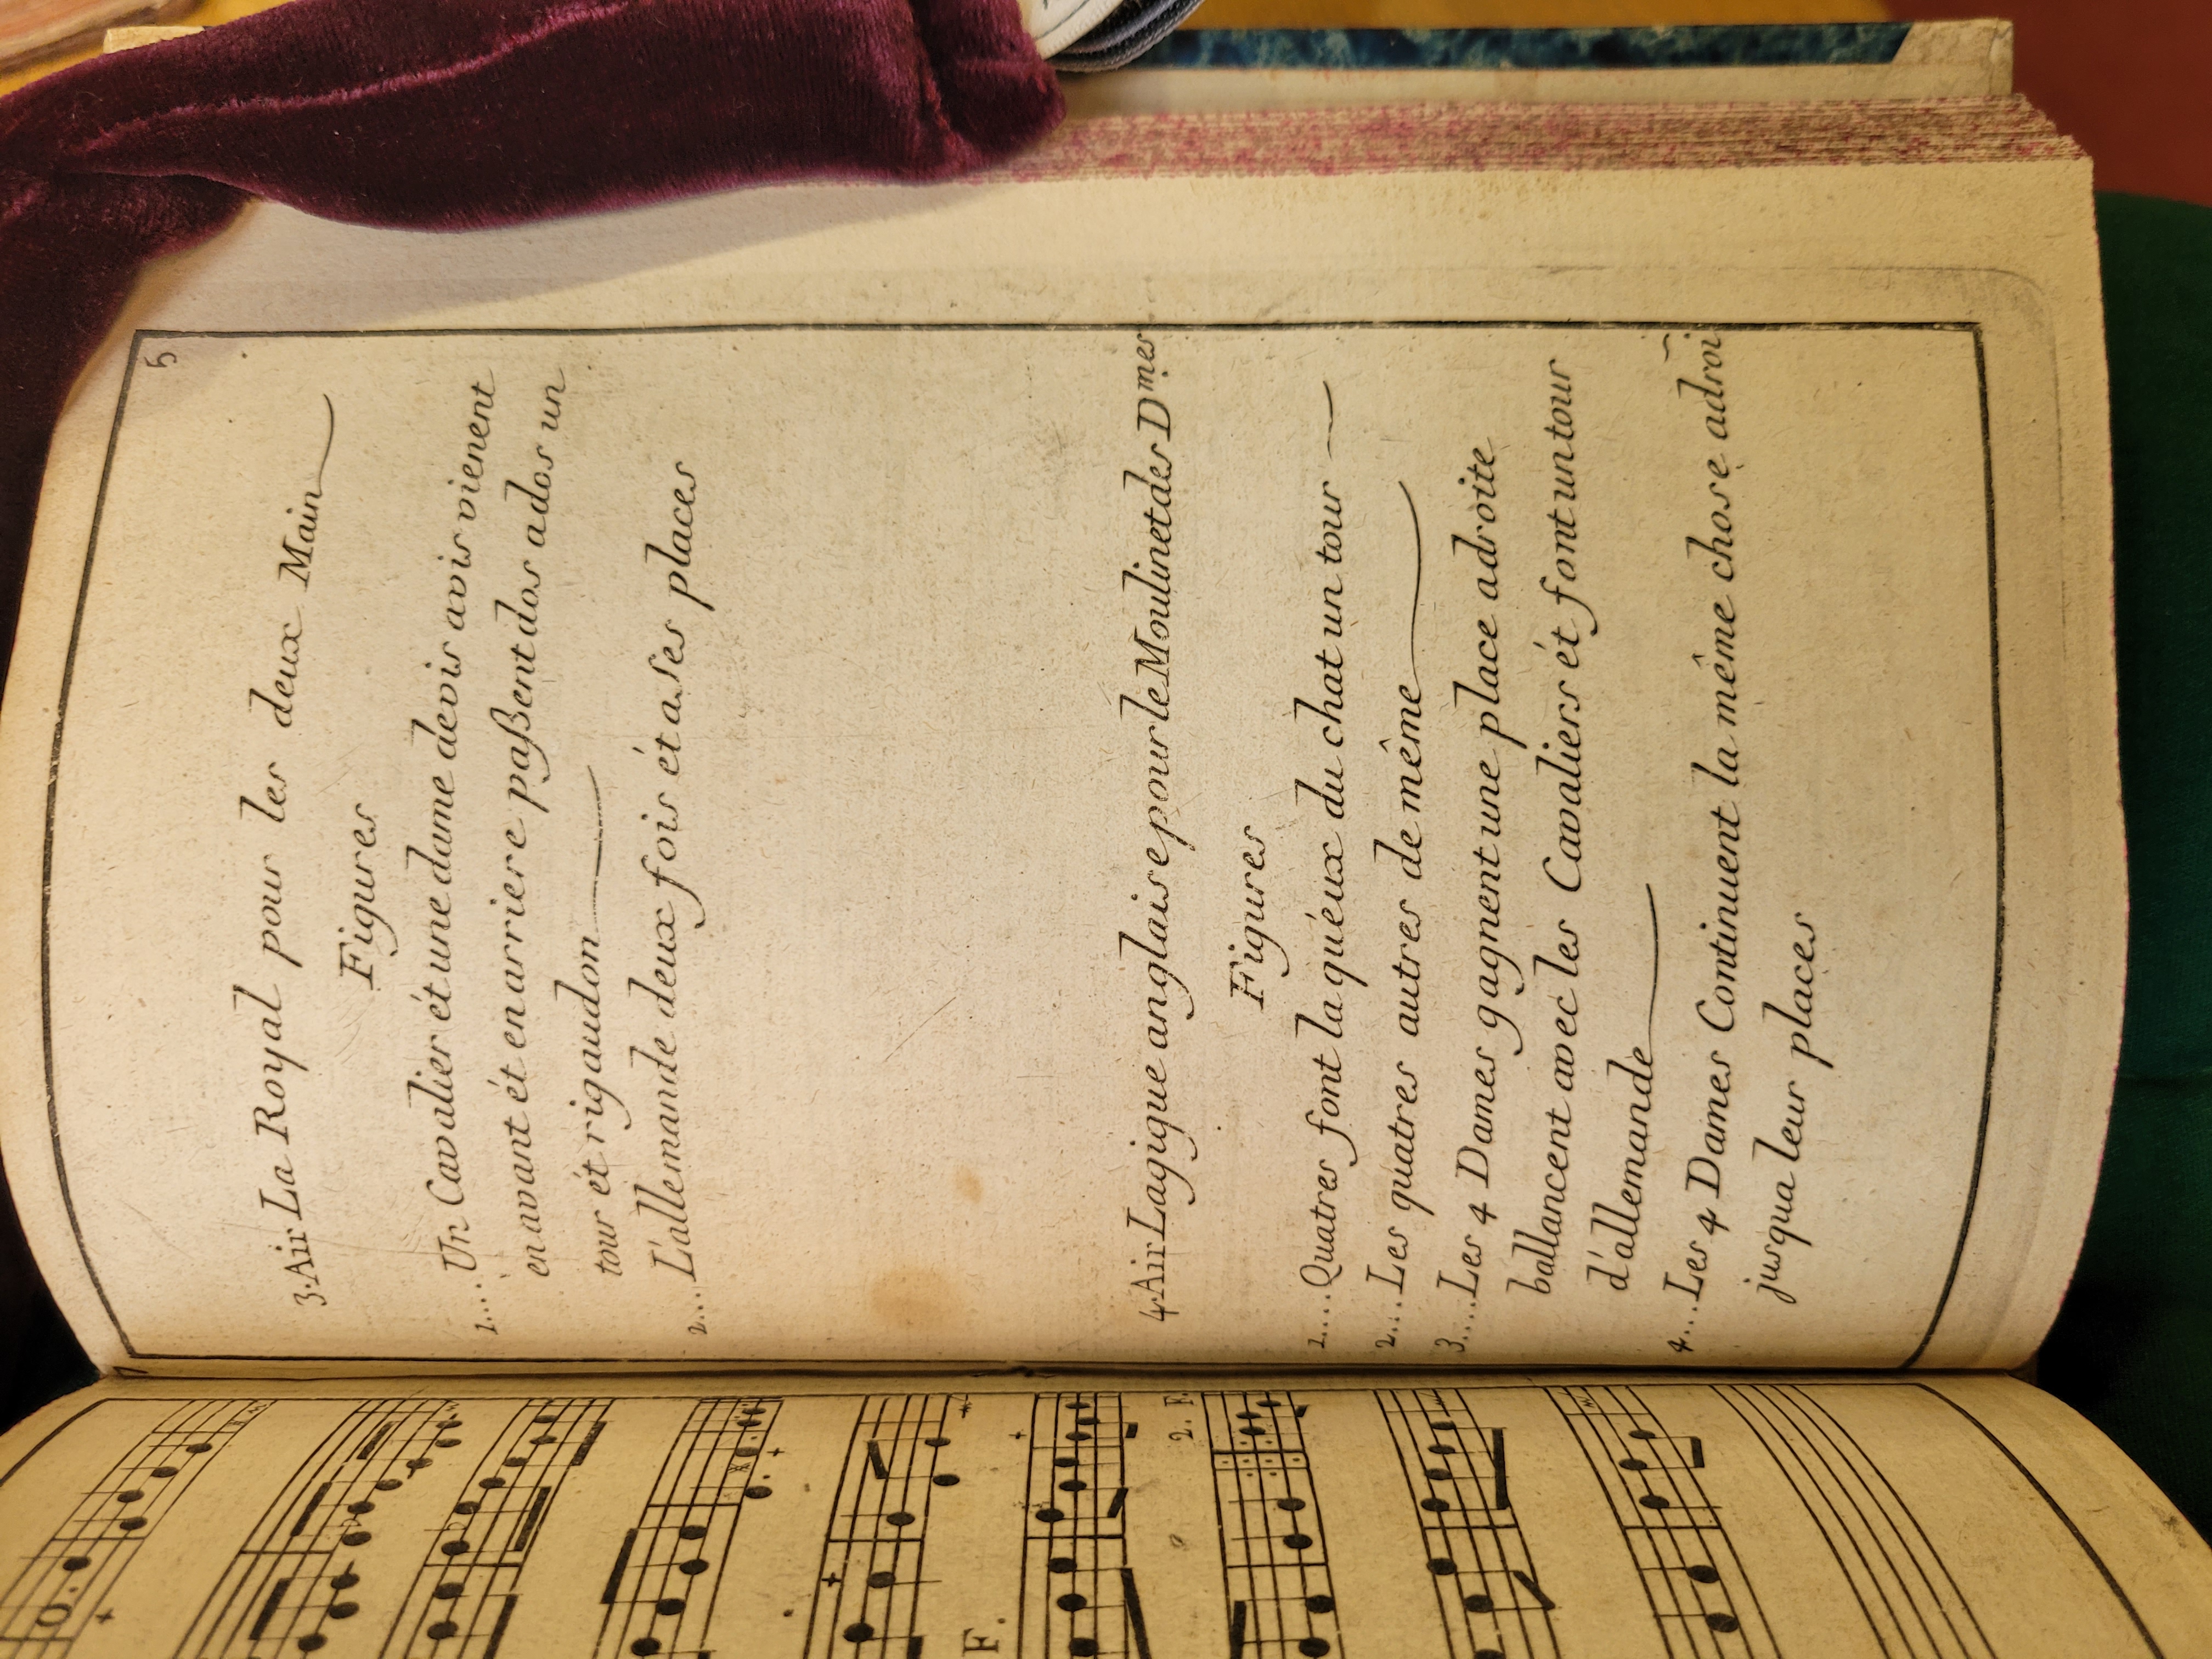 5
3. Air La Royal pour les deux Main
Figures
1... Un Cavalier ét une dame devis avis vienent
en avant ét en arriere paßent dos ados un
tour ét rigaudon
2... L'allemande deux fois ét a ses places
4 Air La gigue anglaise pour le Moulinet des Dmes
Figures
1.... Quatres font la quéux du chat un tour
2.... Les quatres autres de même
3.... Les 4 Dames gagnent une place adroite
ballancent avec les Cavaliers ét font un tour
d'allemande
4... Les 4 Dames Continuent la même chose adroi
jusqua leur places
F.
2. F.